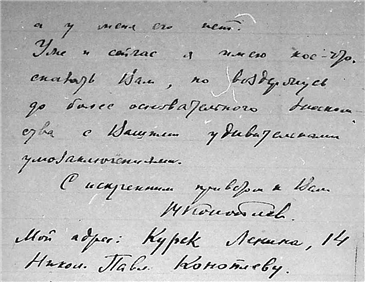 а у меня его нет.
Уже и сейчас я имею кое-что
сказать Вам, но воздержусь
до более основательного знаком
ства с Вашими удивительными
умозаключениями.
С искренним приветом к Вам
НКонотлев.
Мой адрес: Курск Ленина, 14
Никол. Павл. Конотлеву.